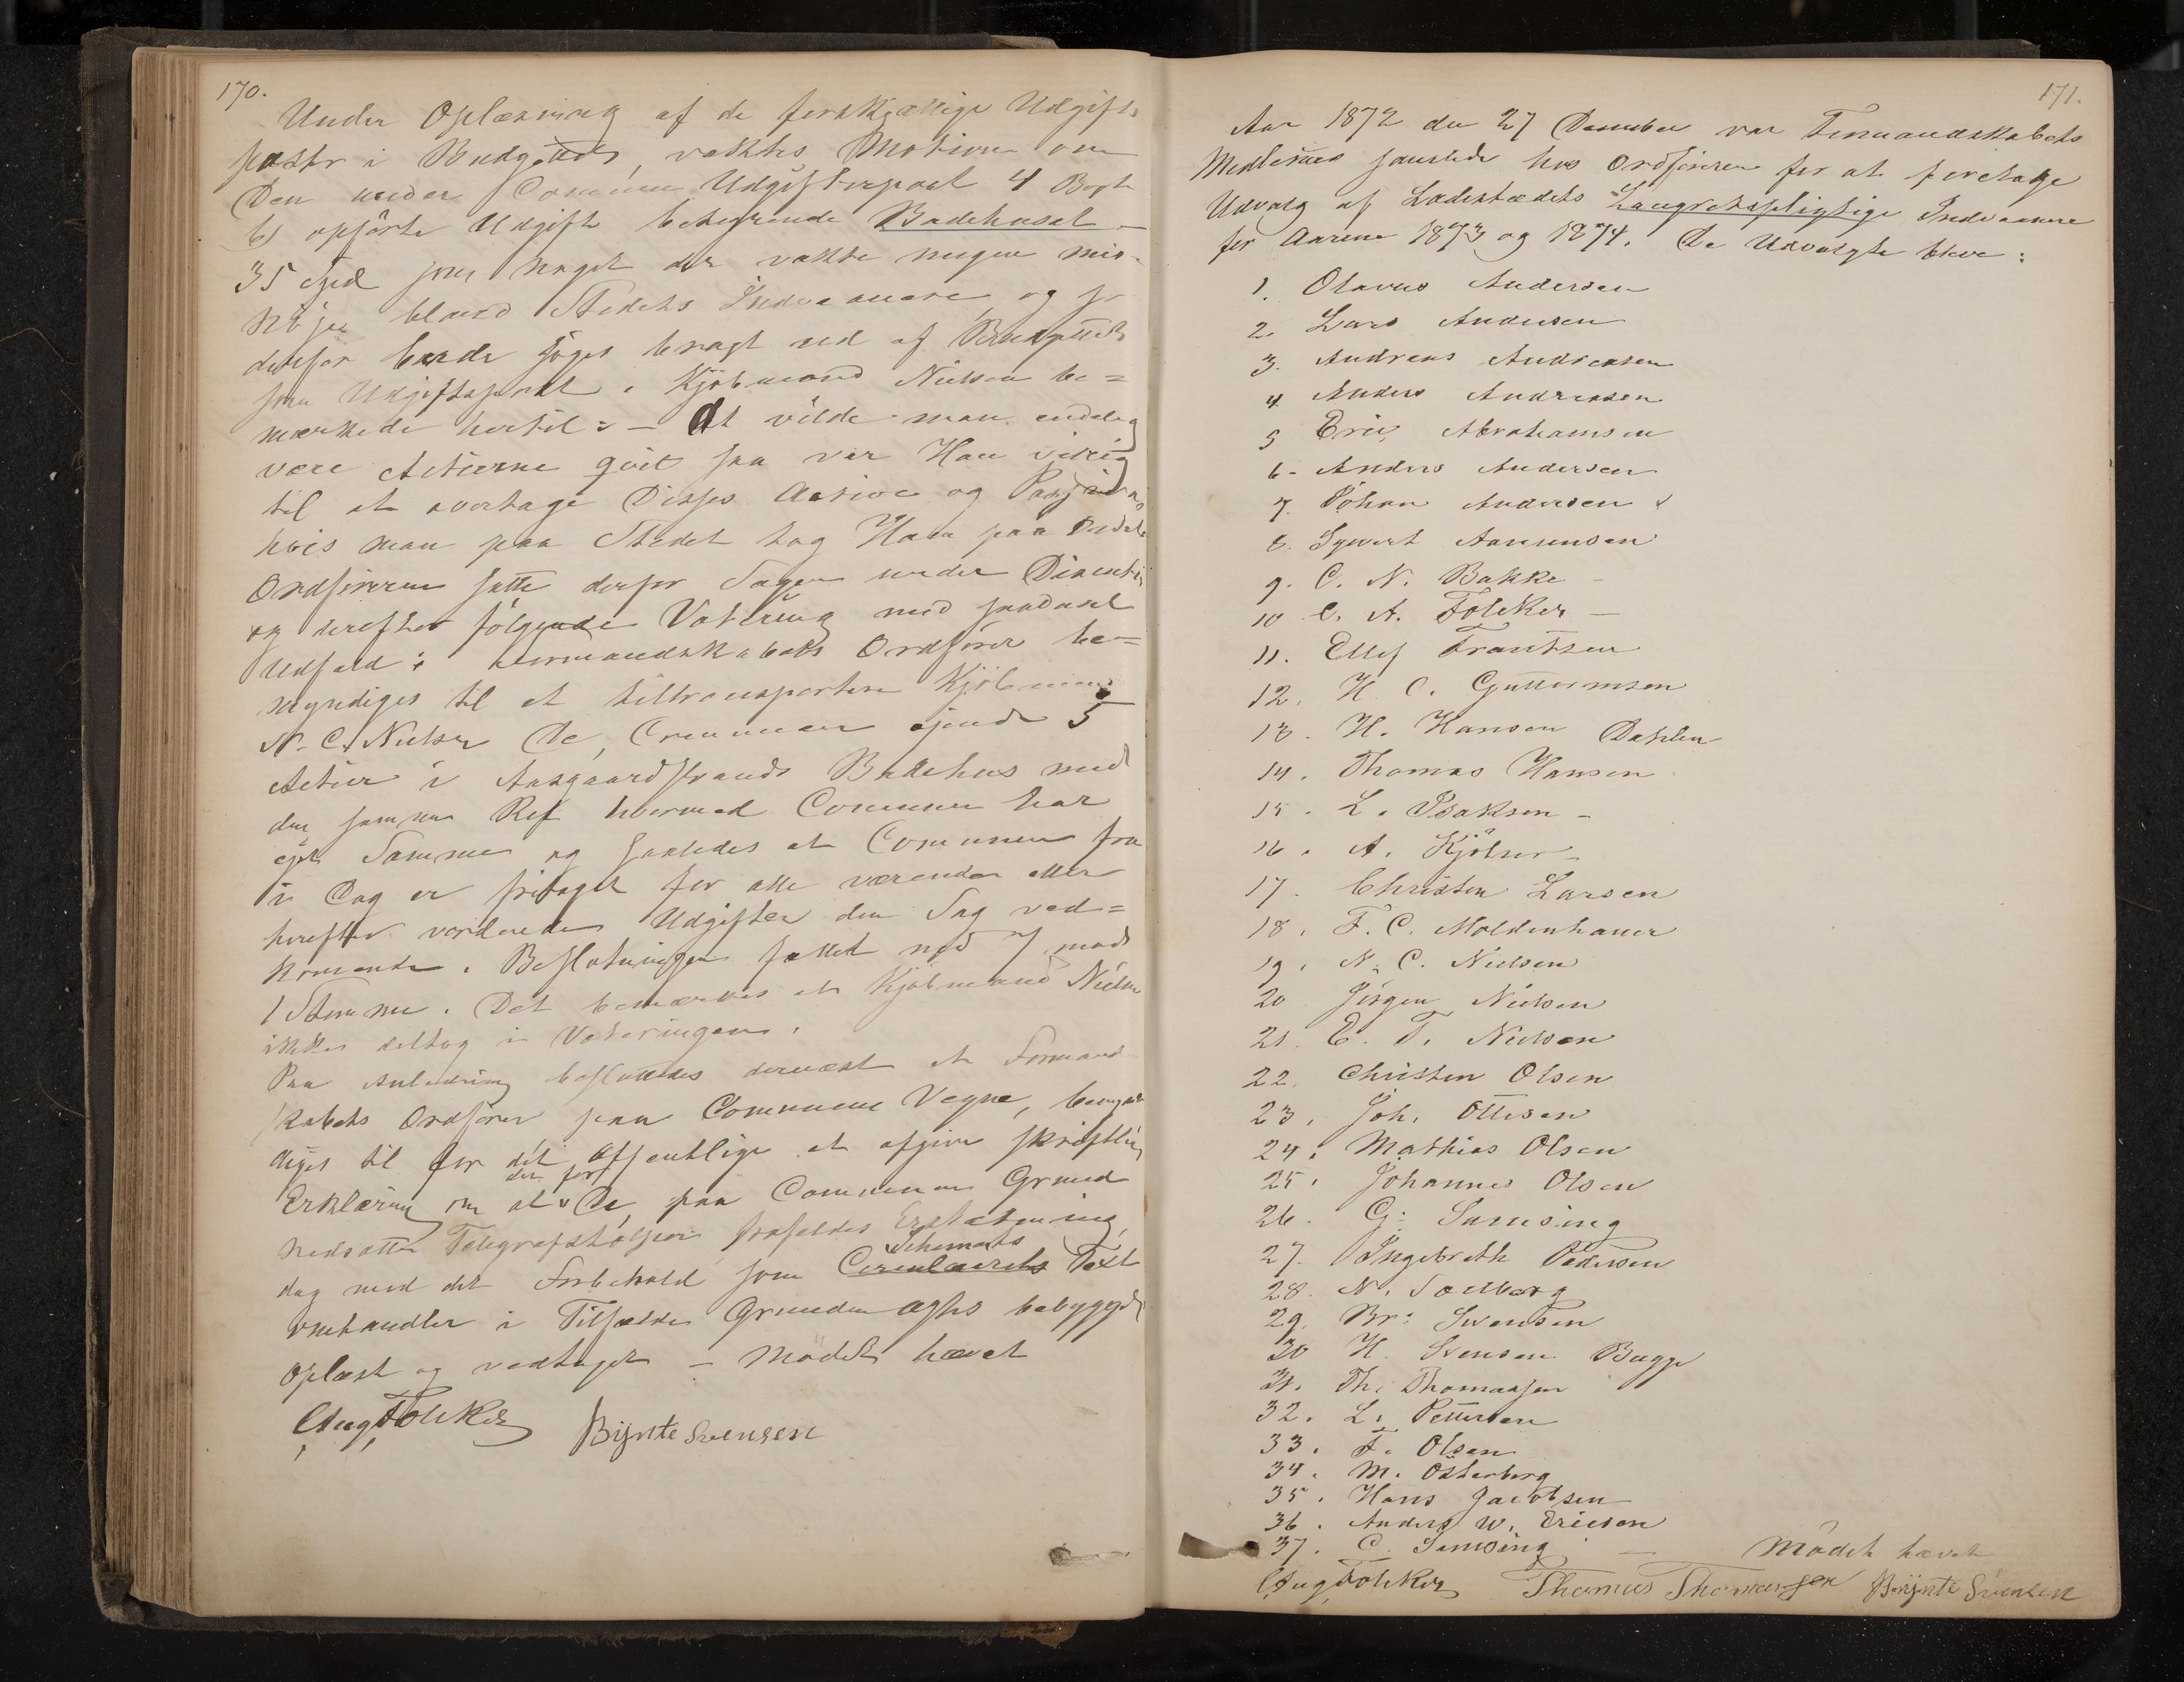 170.
Under Oplæsning af de forskjællige Udgifts
poster i Budgettet, vaktes Motion om
Den under Comunen Udgifterpost 4 Bogst
b) opförte Udgift betegnende Badehuset –
35 Spd som noget der vakte megen mis-
nöje bland Stedets Indvaanere, og so
derfor burde söges bragt ud af Budgettet
som Udgiftspost. Kjöbmand Nielsen be=
mærkede hertil: – At vilde man endelig
være Actierne qvit saa var Han villig
til at overtage Disses Active og Passiva
hvis man paa Stedet tog Ham paa Ordet
Ordföreren satte derfor Sagen under Discution
og derefter fölgende Votering med saadant
Udfald: Formandskabets Ordförer be=
myndiges til at tiltransportere Kjöbmand
N. C. Nielsen De, Communen ejende 5
Actier i Aasgaardstrands Badehus med
den samme Ret hvormed Communen har
ejet Samme og saaledes at Communen fra
i Dag er fritaget for alle værende eller
herefter vordende Udgifter den Sag ved=
kommende. Beslutningen fattet med 7 mod
1 Stemme. Det bemærkes at Kjöbmand Nielsen
ikke deltog i Voteringen.
Paa Anledning besluttedes dernæst at Formand
skabets Ordförer paa Communens Vegne, bemyn
diges til for det Offentlige at afgive skriftlig
Erklæring om at der for De paa Communens Grund
nedsatte Telegrafstolper frafaldes Erstatning,
dog med det Forbehold som Cirenlairets Schemats Text
omhandler i Tilfælde Grunden agtes bebygget
Oplæst og vedtaget – Mödet hævet
Aug Fölcker Bijnte Svensen
171.
Aar 1872 den 27 December var Formandskabets
Medlemmer samlede hos Ordföreren for at foretage
Udvalg af Ladestædets Laugretspligtige Indvaanere
for Aarene 1873 og 1874. De Udvalgte bleve:
1. Olavus Andersen
2. Lars Andersen
3. Andreas Andreasen
4 Anders Andreasen
5 Eric Abrahamsen
6- Anders Andersen
7. Johan Andersen
8. Sywert Aanensen
9. C. N. Bakke –
10 C. A. Fölcker –
11. Ellef Frantzen
12. H. C. Guttormsen
13. H. Hansen Dahlen
14. Thomas Hansen
15. L. Isaksen –
16. A. Kjölner –
17. Christen Larsen
18. F. C. Moldenhauer
19. N. C. Nielsen
20 Jörgen Nielsen
21. E. T. Nielsen
22. Christen Olsen
23. Joh. Ottesen
24. Mathias Olsen
25. Johannes Olsen
26. G. Samsing
27. Ingebreth Pedersen
28. N. Soelberg
29. Br: Svensen
30 H. Svensen Bugge
31. Th. Thomassen
32. L. Pettersen
33. F. Olsen
34. M. Österberg
35. Hans Jacobsen
36. Anders W. Ericson
37. C. Samsing – Mödet hævet
Aug Fölcker Thomas Thomassen Bijnte Svensen